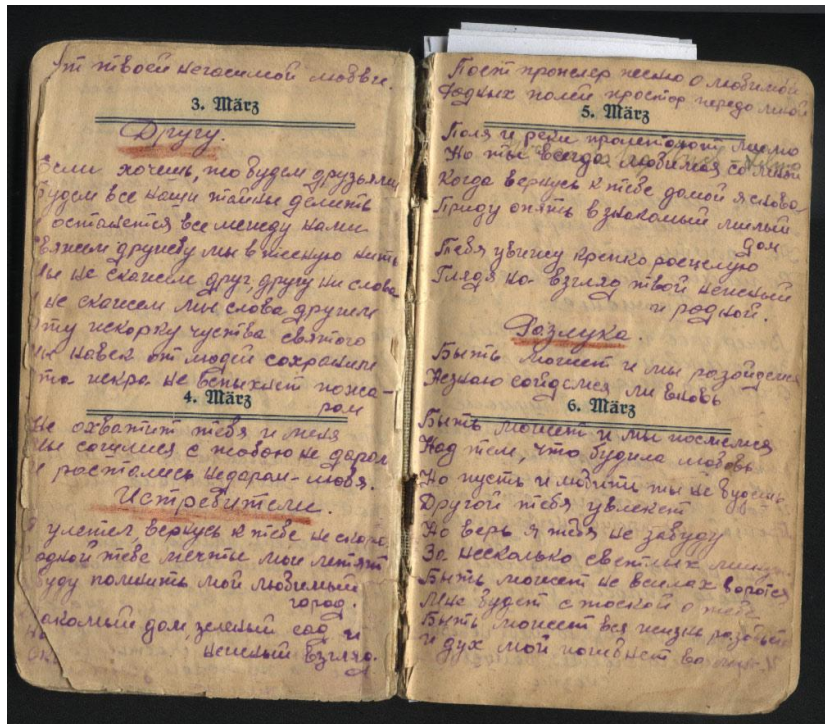 от твоей негасимой любви.
3. März
Другу.
Если хочешь, то будем друзьями
Будем все наши тайны делить
И останется все между нами
Свяжем дружбу мы в тесную нить
Мы не скажем друг другу ни слова
И не скажем мы слова другим
Эту искорку чуства святого
Мы навек от людей сохраним
Эта искра не вспыхнет пожа-
ром
4. März
Не охватит тебя и меня
Мы сошлися с тобою не даром
И росстались недаром – любя.
Истребители.
Я улетел, вернусь к тебе не скоро
одной тебе мечты мои летят
Буду помнить мой любимый
город.
Знакомый дом, зеленый сад и
нежный взгляд.
Поёт пропелер песню о любимой
Родных полей простор передо мной
5. März
Поля и реки пролетают мимо
Но ты всегда любимая со мной
Когда вернусь к тебе домой я снова
Приду опять в знакомый милый
дом
Тебя увижу крепко росцелую
Глядя на взгляд твой нежный
и родной.
Разлука.
Быть может и мы розойдемся
Незнаю сойдемся ли вновь
6. März
Быть может и мы посмеемся
Над тем, что будила любовь
Но пусть и любить ты не будешь
Другой тебя увлекет
Но верь я тебя не забуду
За несколько светлых минут
Быть может не всилах боротся
Мне будет с тоской о тебе
Быть может вся жизнь розобьется
И дух мой погибнет во